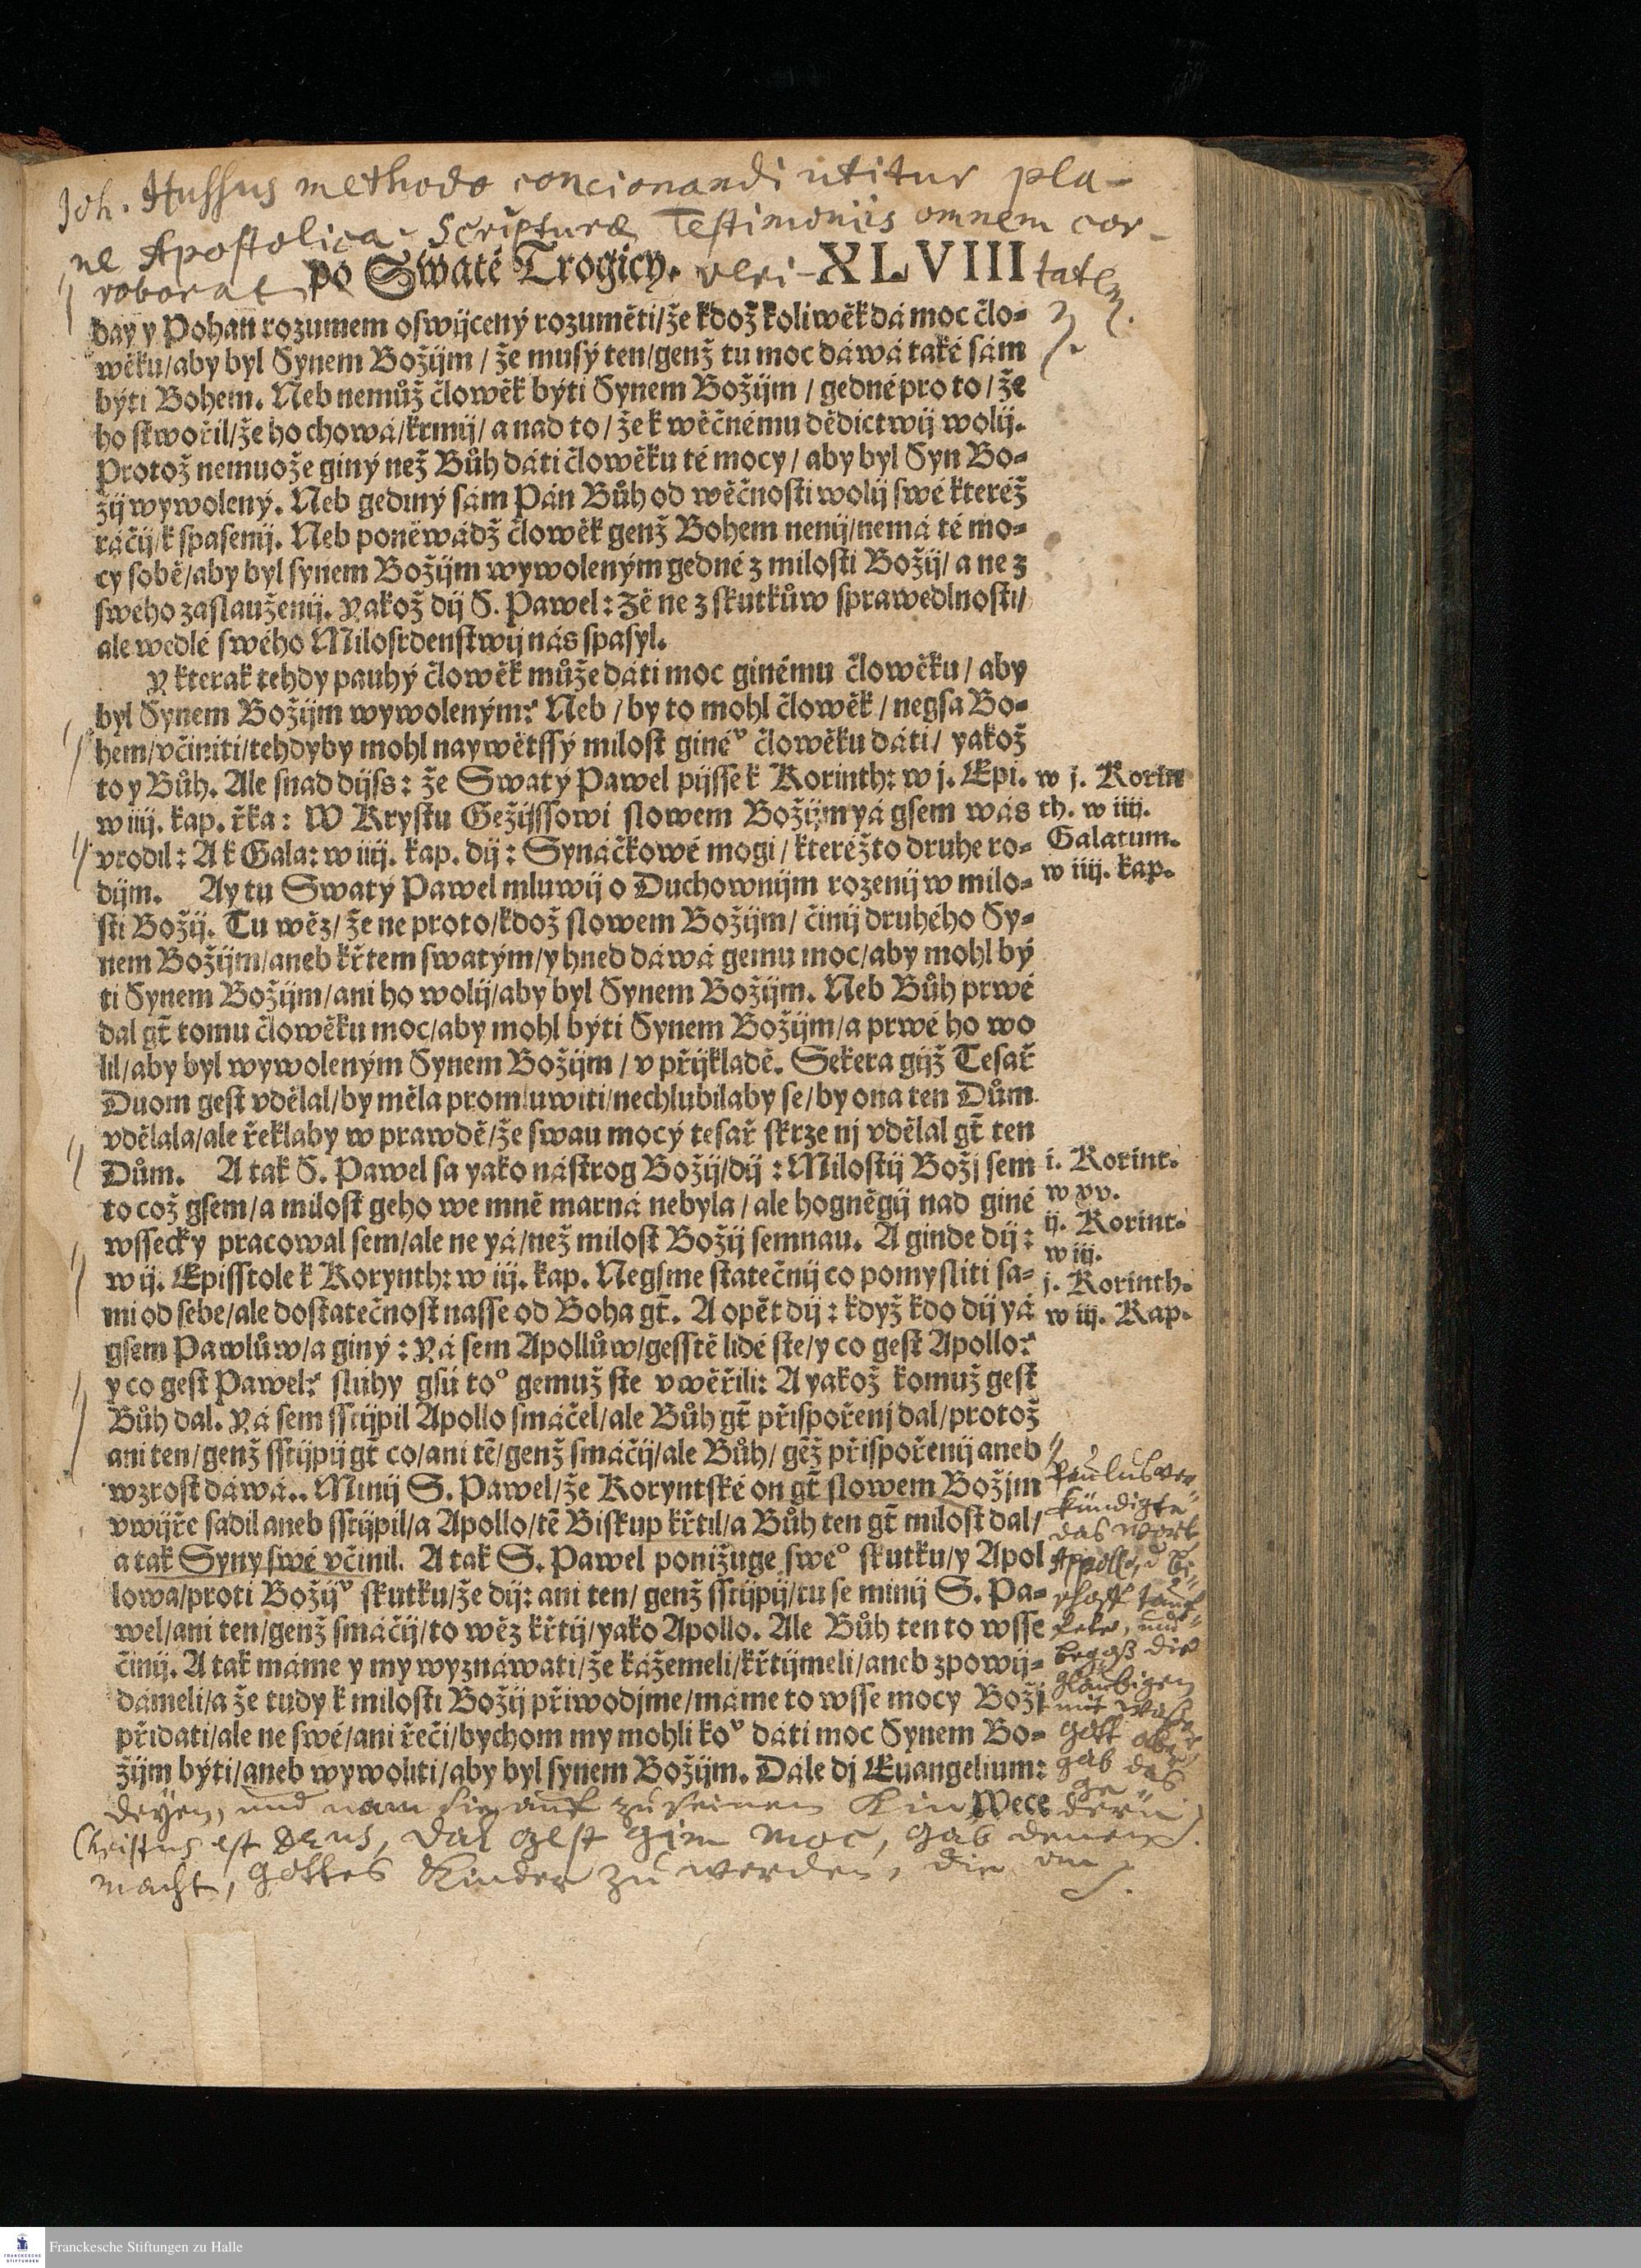 Joh. Hussus methodo concionandi utitur pla-
ne Apostolica. Scripturæ Testimoniis omnem cor-
roborat veri- tatem
po Swaté Trogicy. XLVIII
day y Pohan rozumem oswijcený rozuměti/že kdož koliwěk dá moc člo-
wěku/aby byl Synem Božijm / že musý ten/genž tu moc dáwá také sám
býti Bohem. Neb nemůž člowěk býti Synem Božijm / gedné pro to / že
ho stwořil/že ho chowá/krmij/ a nad to / že k wěčnému dědictwij wolij.
Protož nemuože giný než Bůh dáti člowěku té mocy / aby byl Syn Bo-
žij wywolený. Neb gediný sám Pán Bůh od wěčnosti wolij swé kteréž
ráčij/k spasenij. Neb poněwádž člowěk genž Bohem nenij/nemá té mo-
cy sobě/aby byl synem Božijm wywoleným gedné z milosti Božij/ a ne z
sweho zaslauženij. Yakož dij S. Pawel: Zě ne z skutkůw sprawedlnosti/
ale wedlé swého Milosrdenstwij nás spasyl.
Y kterak tehdy pauhý člowěk může dáti moc ginému člowěku / aby
byl Synem Božijm wywoleným? Neb / by to mohl člowěk / negsa Bo-
hem/včiniti/tehdyby mohl naywětssý milost ginéͮ člowěku dáti / yakož
to y Bůh. Ale snad dijss: že Swatý Pawel pijsse k Korinth: w j. Epi.
w iiij. kap. řka: W Krystu Gežijssowi slowem Božijm yá gsem wás
vrodil: A k Gala: w iiij. kap. dij: Synáčkowé mogi / kteréžto druhe ro-
dijm. Ay tu Swatý Pawel mluwij o Duchownijm rozenij w milo-
sti Božij. Tu wěz/ že ne proto/kdož slowem Božijm/ činij druhého Sy-
nem Božijm/aneb křtem swatým/y hned dáwá gemu moc/aby mohl bý
ti Synem Božijm/ani ho wolij/aby byl Synem Božijm. Neb Bůh prwé
dal gt̃ tomu člowěku moc/aby mohl býti Synem Božijm/a prwé ho wo
lil/aby byl wywoleným Synem Božijm / v přijkladě. Sekera gijž Tesař
Duom gest vdělal/by měla promluwiti/nechlubilaby se/by ona ten Dům
vdělala/ale řeklaby w prawdě/že swau mocý tesař skrze nj vdělal gt̃ ten
Dům. A tak S. Pawel sa yako nástrog Božij/dij : Milostij Božj sem
to což gsem/a milost geho we mně marná nebyla / ale hogněgij nad giné
wssecky pracowal sem/ale ne yá/než milost Božij semnau. A ginde dij :
w ij. Episstole k Korynth: w iij. kap. Negsme statečnij co pomysliti sa-
mi od sebe/ale dostatečnost nasse od Boha gt̃. A opět dij : když kdo dij yá
gsem Pawlůw/a giný : Yá sem Apollůw/gesstě lidé ste/y co gest Apollo?
y co gest Pawel? sluhy gsú toº gemuž ste vwěřili: A yakož komuž gest
Bůh dal. Yá sem sstijpil Apollo smáčel/ale Bůh gt̃ přispořenj dal/protož
ani ten/genž sstijpij gt̃ co/ani tẽ/genž smáčij/ale Bůh/ gẽž přispořenij aneb
wzrost dáwá.. Minij S. Pawel/že Koryntské on gt̃ slowem Božjm
vwijře sadil aneb sstijpil/a Apollo/tẽ Biskup křtil/a Bůh ten gt̃ milost dal/
a tak Syny swé včinil. A tak S. Pawel ponižuge sweº skutku/y Apol
lowa/proti Božijͮ skutku/že dij: ani ten/ genž sstijpij/tu se minij S. Pa-
wel/ani ten/genž smáčij/to wěz křtij/yako Apollo. Ale Bůh ten to wsse
činij. A tak máme y my wyznáwati/že kážemeli/křtijmeli/aneb zpowij-
dámeli/a že tudy k milosti Božij přiwodjme/máme to wsse mocy Božj
přidati/ale ne swé/ani řeči/bychom my mohli koͮ dáti moc Synem Bo-
žijm býti/aneb wywoliti/aby byl synem Božijm. Dále dj Euangelium:
Wece
w j. Korin
th. w iiij.
Galatum.
w iiij. kap.
i. Korint.
w xv.
ij. Korint.
w iij.
j. Korinth.
w iij. Kap.
Paulus ver-
kündigte
das Wort
Appollo, d Bi-
schoff tauf-
fete, und
begoß die
glaubigen
mit Wasser
Gott aber
gab das
ge-
deyen, und nam sie auf zu seinen Kin- dern
Christus est Deus, dal gest gim moc, gab denen
macht, Gottes Kinder zu werden, die an
Franckesche Stiftungen zu Halle